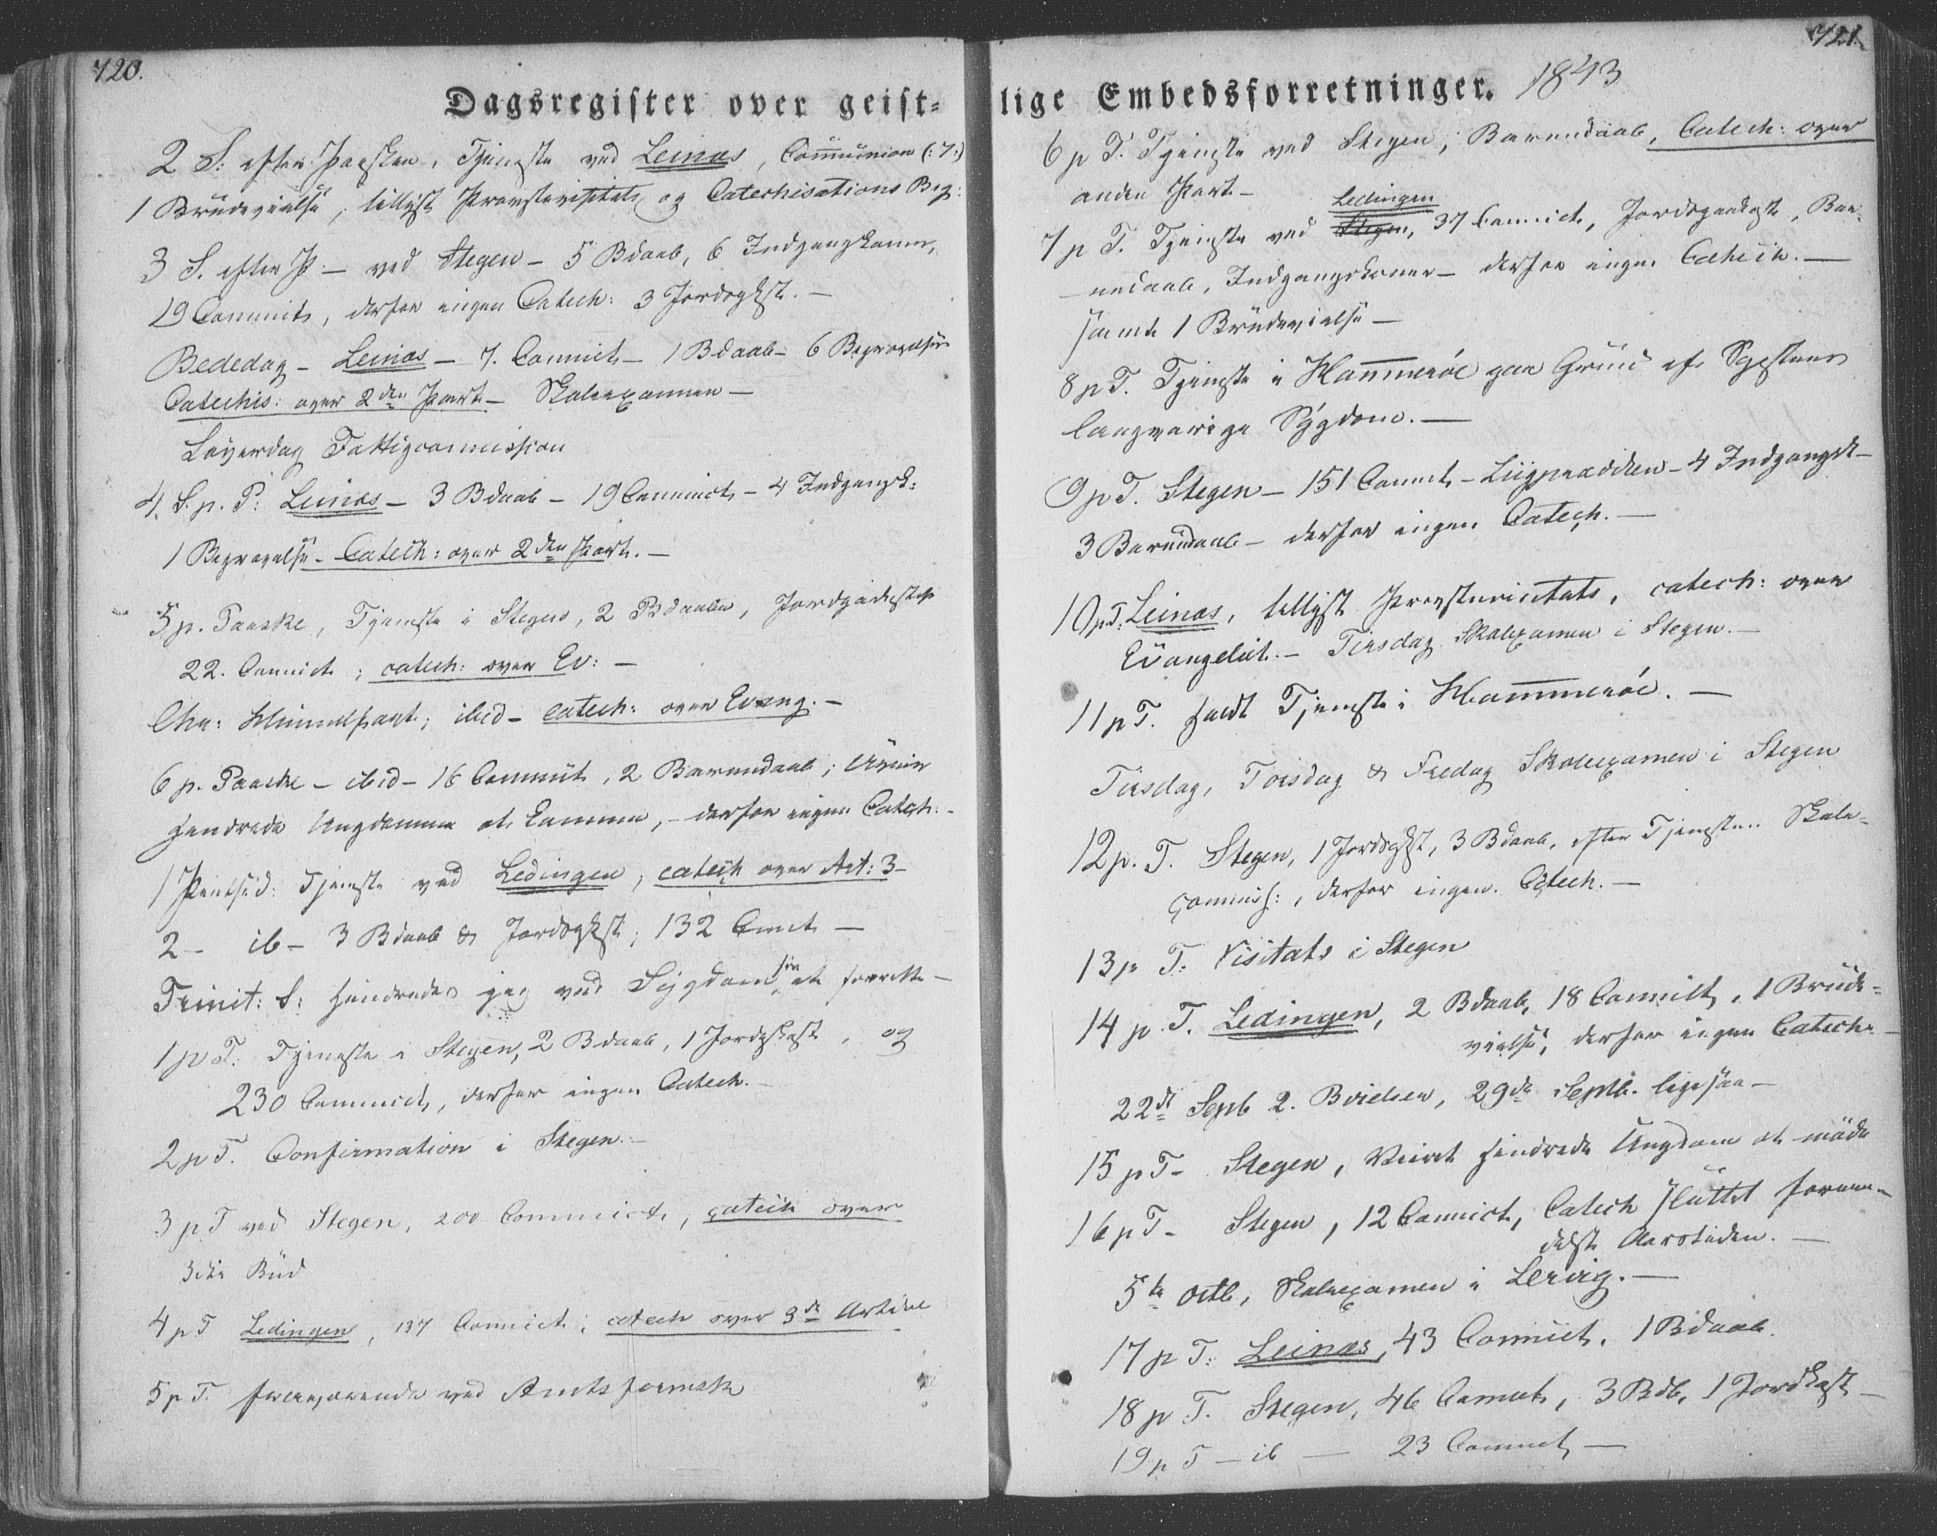 720.
Dagsregister over geist-
2 S: efter Paasken, Tjeneste ved Leinæs, Communion (:7:)
1 Brudevielse, tillyst Provstevisitats og Catechisations Beg:
3 S. efter P. — ved Stegen — 5 Bdaab, 6 Indgangskoner,
19 Communic, derfor ingen Catech: 3 Jordsgkst. —
Bededag — Leinæs — 7. Comnict — 1 Bdaab — 6 Begravelser
Catechis: over 2den Part — Skoleexamen —
Løverdag Fattigcommission
4. S. p. P: Leinæs — 3 Bdaab — 19 Communict — 4 Indgangsk:
1 Begravelse — Catech: over 2den Part. —
5 p. Paaske, Tjeneste i Stegen, 2 Bdaabe,
22. Comnict; catech: over Ev: —
Chr: Himmelfart; ibid — catech: over Evang. —
6 p. Paaske — ibid — 16 Communict, 2 Barnedaab;
hindrede Ungdommen at komme, — derfor ingen Catech: —
1 Pentsed: Tjeneste ved Lødingen; catech over Art: 3 —
2 — ib — 3 Bdaab & Jordsgkst; 132 Comct —
Trinit: S: hindredes jeg ved Sygdom fra at forrette —
1 p T: Tjeneste i Stegen, 2 Bdaab, 1 Jordskast, og
230 Communict, derfor ingen Catech. —
2 p T. Confirmation i Stegen. —
3 p T ved Stegen, 200 Communict, catech over
3die Bud
4 p T Lødingen, 137 Comnict; catech over 3de Artikel
5 p T. fraværende ved
721.
lige Embedsforretninger. 1843
6 p T. Tjeneste ved Stegen, Barnedaab, Catech: over
anden Part —
Lødingen
7 p T. Tjeneste ved Stegen, 37 Comnict, Jordspaakast, Bar-
nedaab, Indgangskoner — derfor ingen Catech. —
samt 1 Brudevielse —
8 p T. Tjeneste i Hammerøe paa Grund af
langvarige Sygdom. —
9 p T. Stegen — 151 Comnct — Liigprædiken — 4 Indgangsk —
3 Barnedaab — derfor ingen Catech. —
10 p T: Leinæs, tillyst Provstevisitats, catech: over
Evangeliet. — Tirsdag Skolexamen i Stegen. —
11 p T. holdt Tjeneste i Hammerøe. —
Tirsdag, Torsdag & Fredag Skoleexamen i Stegen
12 p. T. Stegen, 1 Jordsgkst, 3 Bdaab, efter Tjenesten Skole-
Commiss:, derfor ingen Catech. —
13 p T: Visitats i Stegen
14 p. T. Lødingen, 2 Bdaab, 18 Comnict, 1 Brude-
vielse, derfor ingen Catech —
22de Septb 2. Bvielser, 29de Septb. ligesaa —
15 p T — Stegen, Veiret hindrede Ungdom at møde
16 p T — Stegen, 12 Comnict, Catech sluttet forme-
delst Aarstiden. —
5te Octb, Skoleexamen i Lervig. —
17 p T: Leinæs, 43 Comnict. 1 Bdaab.
18 p T. Stegen, 46 Comnct, 3 Bdb, 1 Jordkast —
19 p T — ib — 23 Comnct —